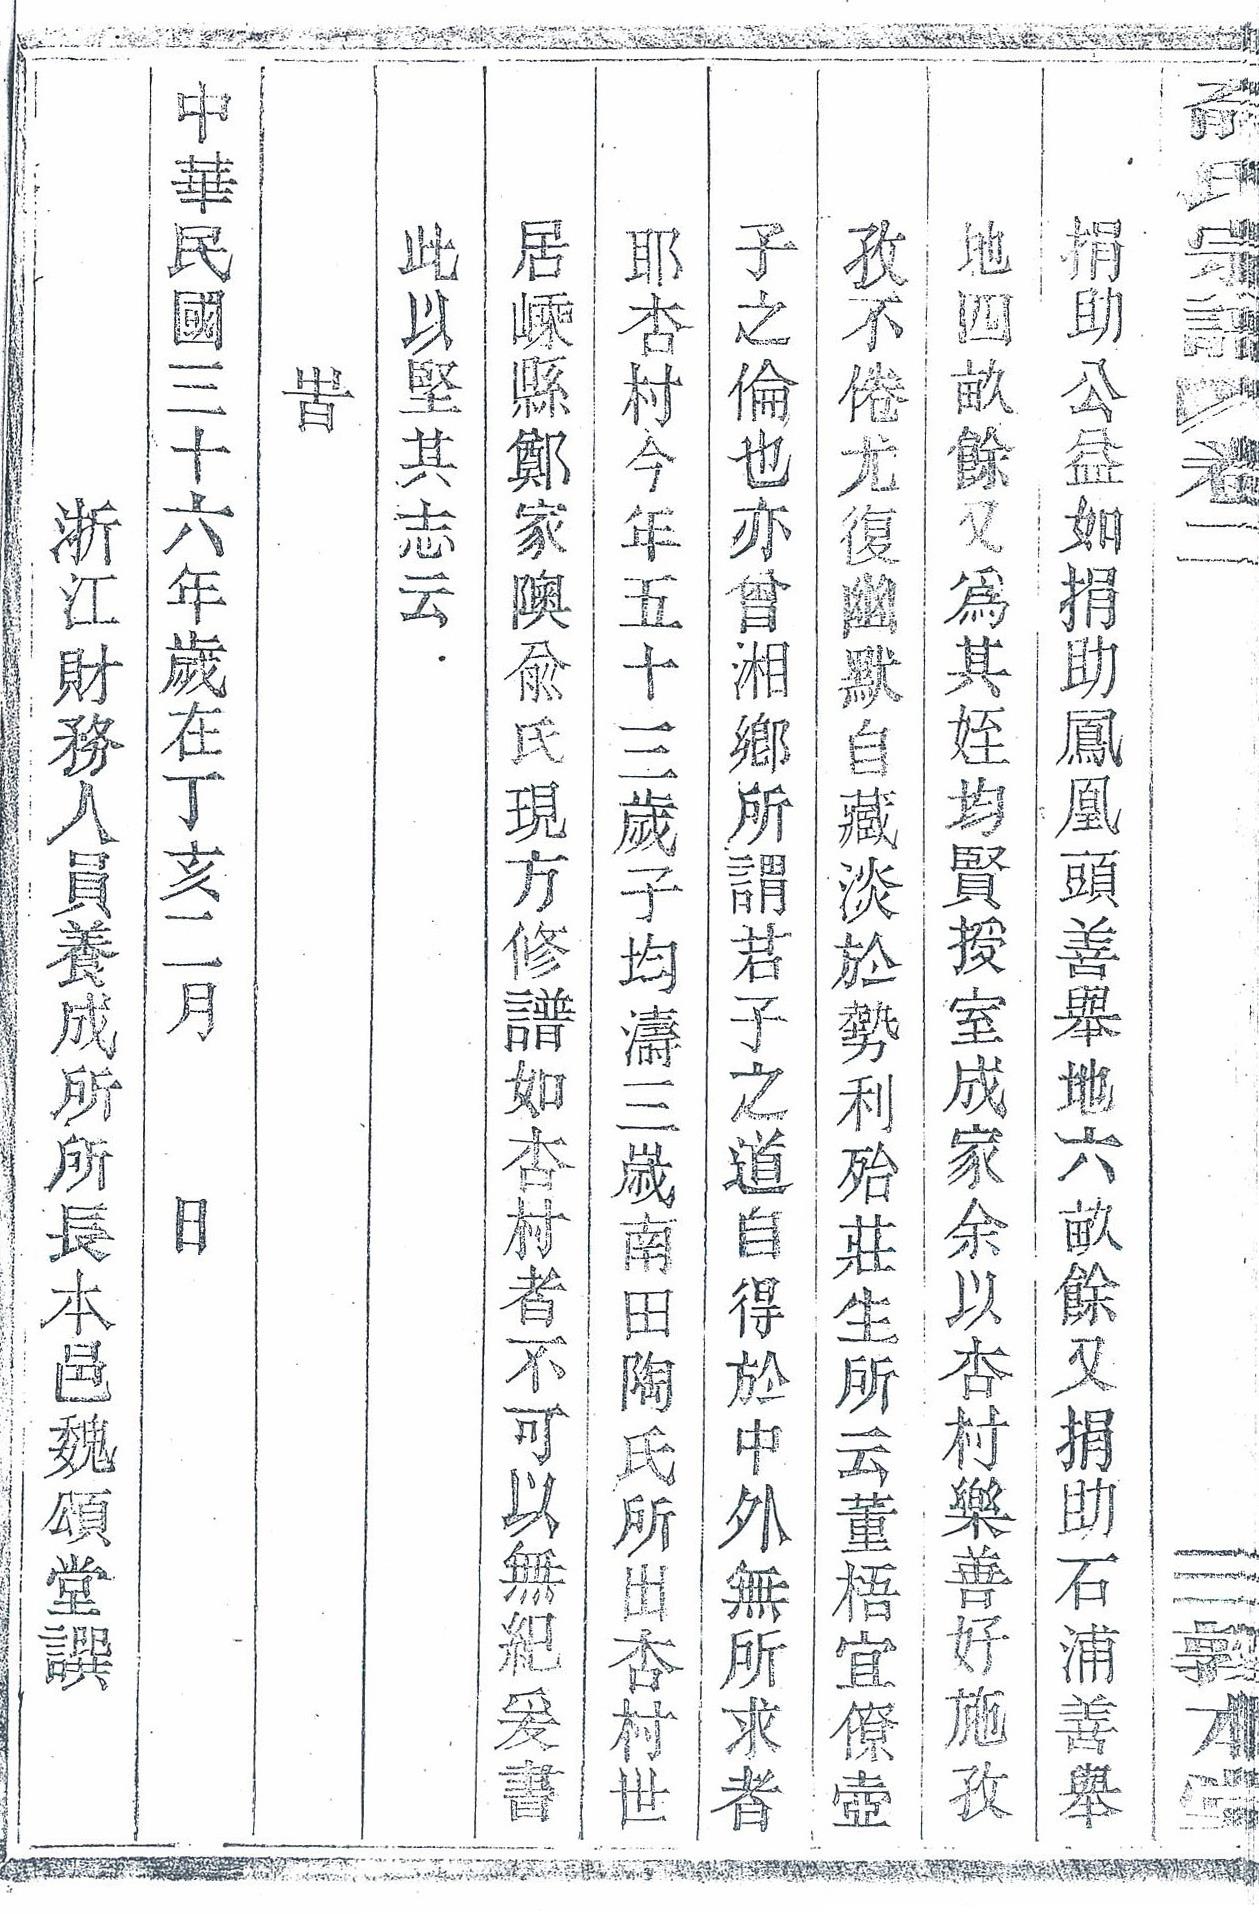 俞氏宗譜 卷二 敦本堂
捐助公益如捐助鳳凰頭善舉地六畝餘又捐助石浦善舉
地四畝餘又爲其姪均賢授室成家余以杏村樂善好施孜
孜不倦尤復幽默自藏淡於勢利殆莊生所云董梧宜僚壺
子之倫也亦曾湘鄉所謂若子之道自得於中外無所求者
耶杏村今年五十三歲子均濤三歲南田陶氏所出杏村世
居嵊縣鄭家隩俞氏現方修譜如杏村者不可以無紀爰書
此以堅其志云
旹
中華民國三十六年歲在丁亥二月 日
浙江財務人員養成所所長本邑魏頌堂譔